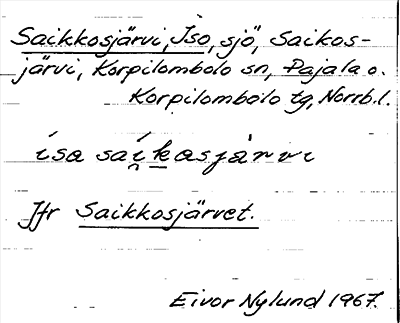 Saikkosjärvi, Iso, sjö, Saikos-
järvi, Korpilombolo sn, Pajala o.
Korpilombolo tg, Norrb.l.
ísɑ sɑi̯kɑsjärvi
Jfr Saikkosjärvet.
Eivor Nylund 1967.